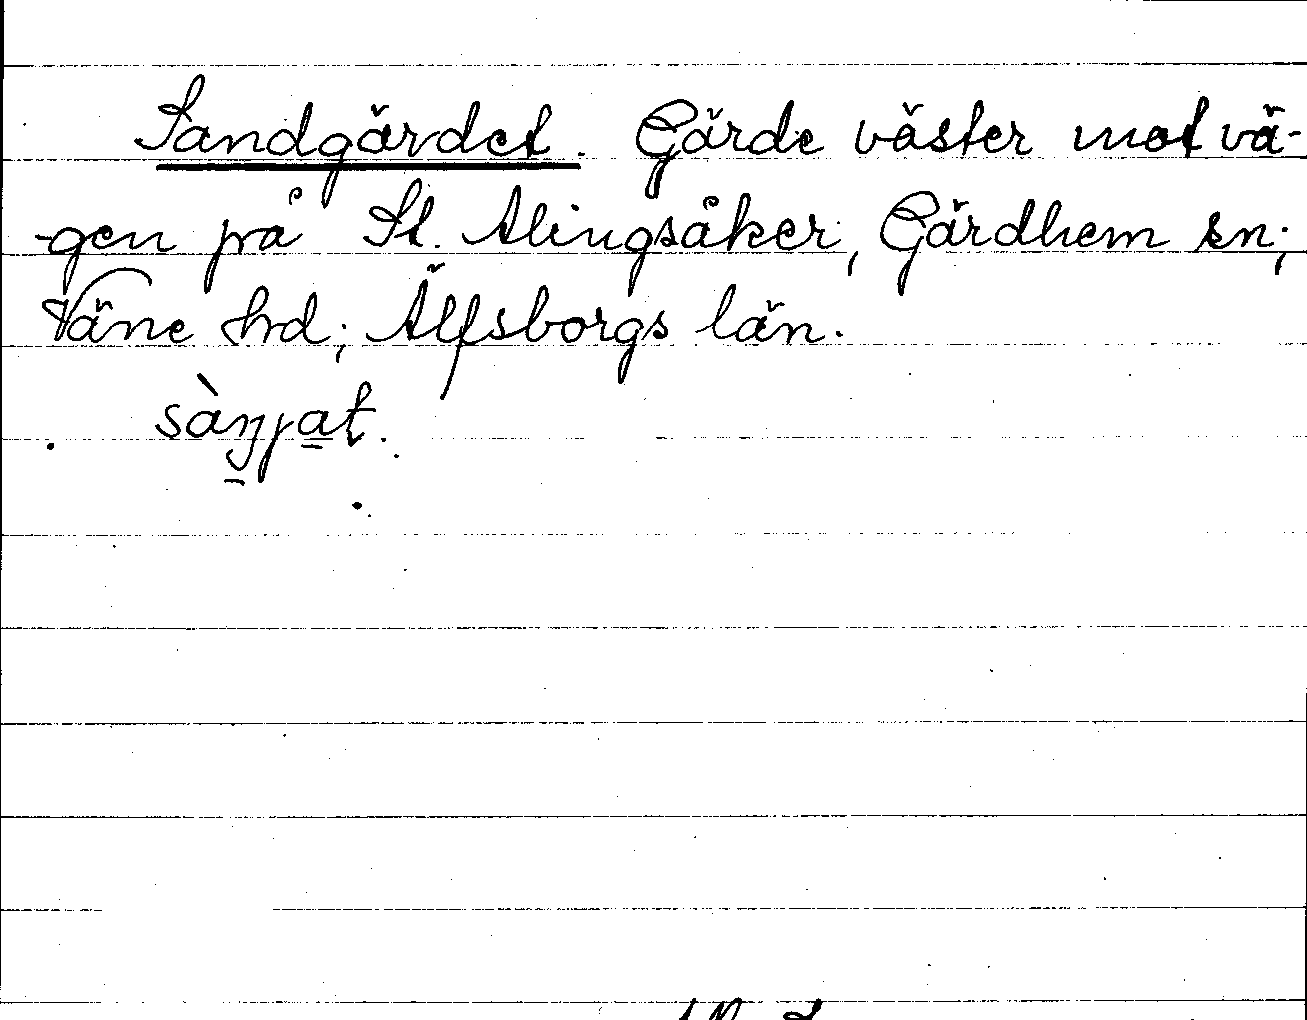 Sandgärdet. Gärde väster mot vä-
-gen på St. Alingsåker, Gärdhem sn;
Väne hd; Älfsborgs län.
sàŋjat.